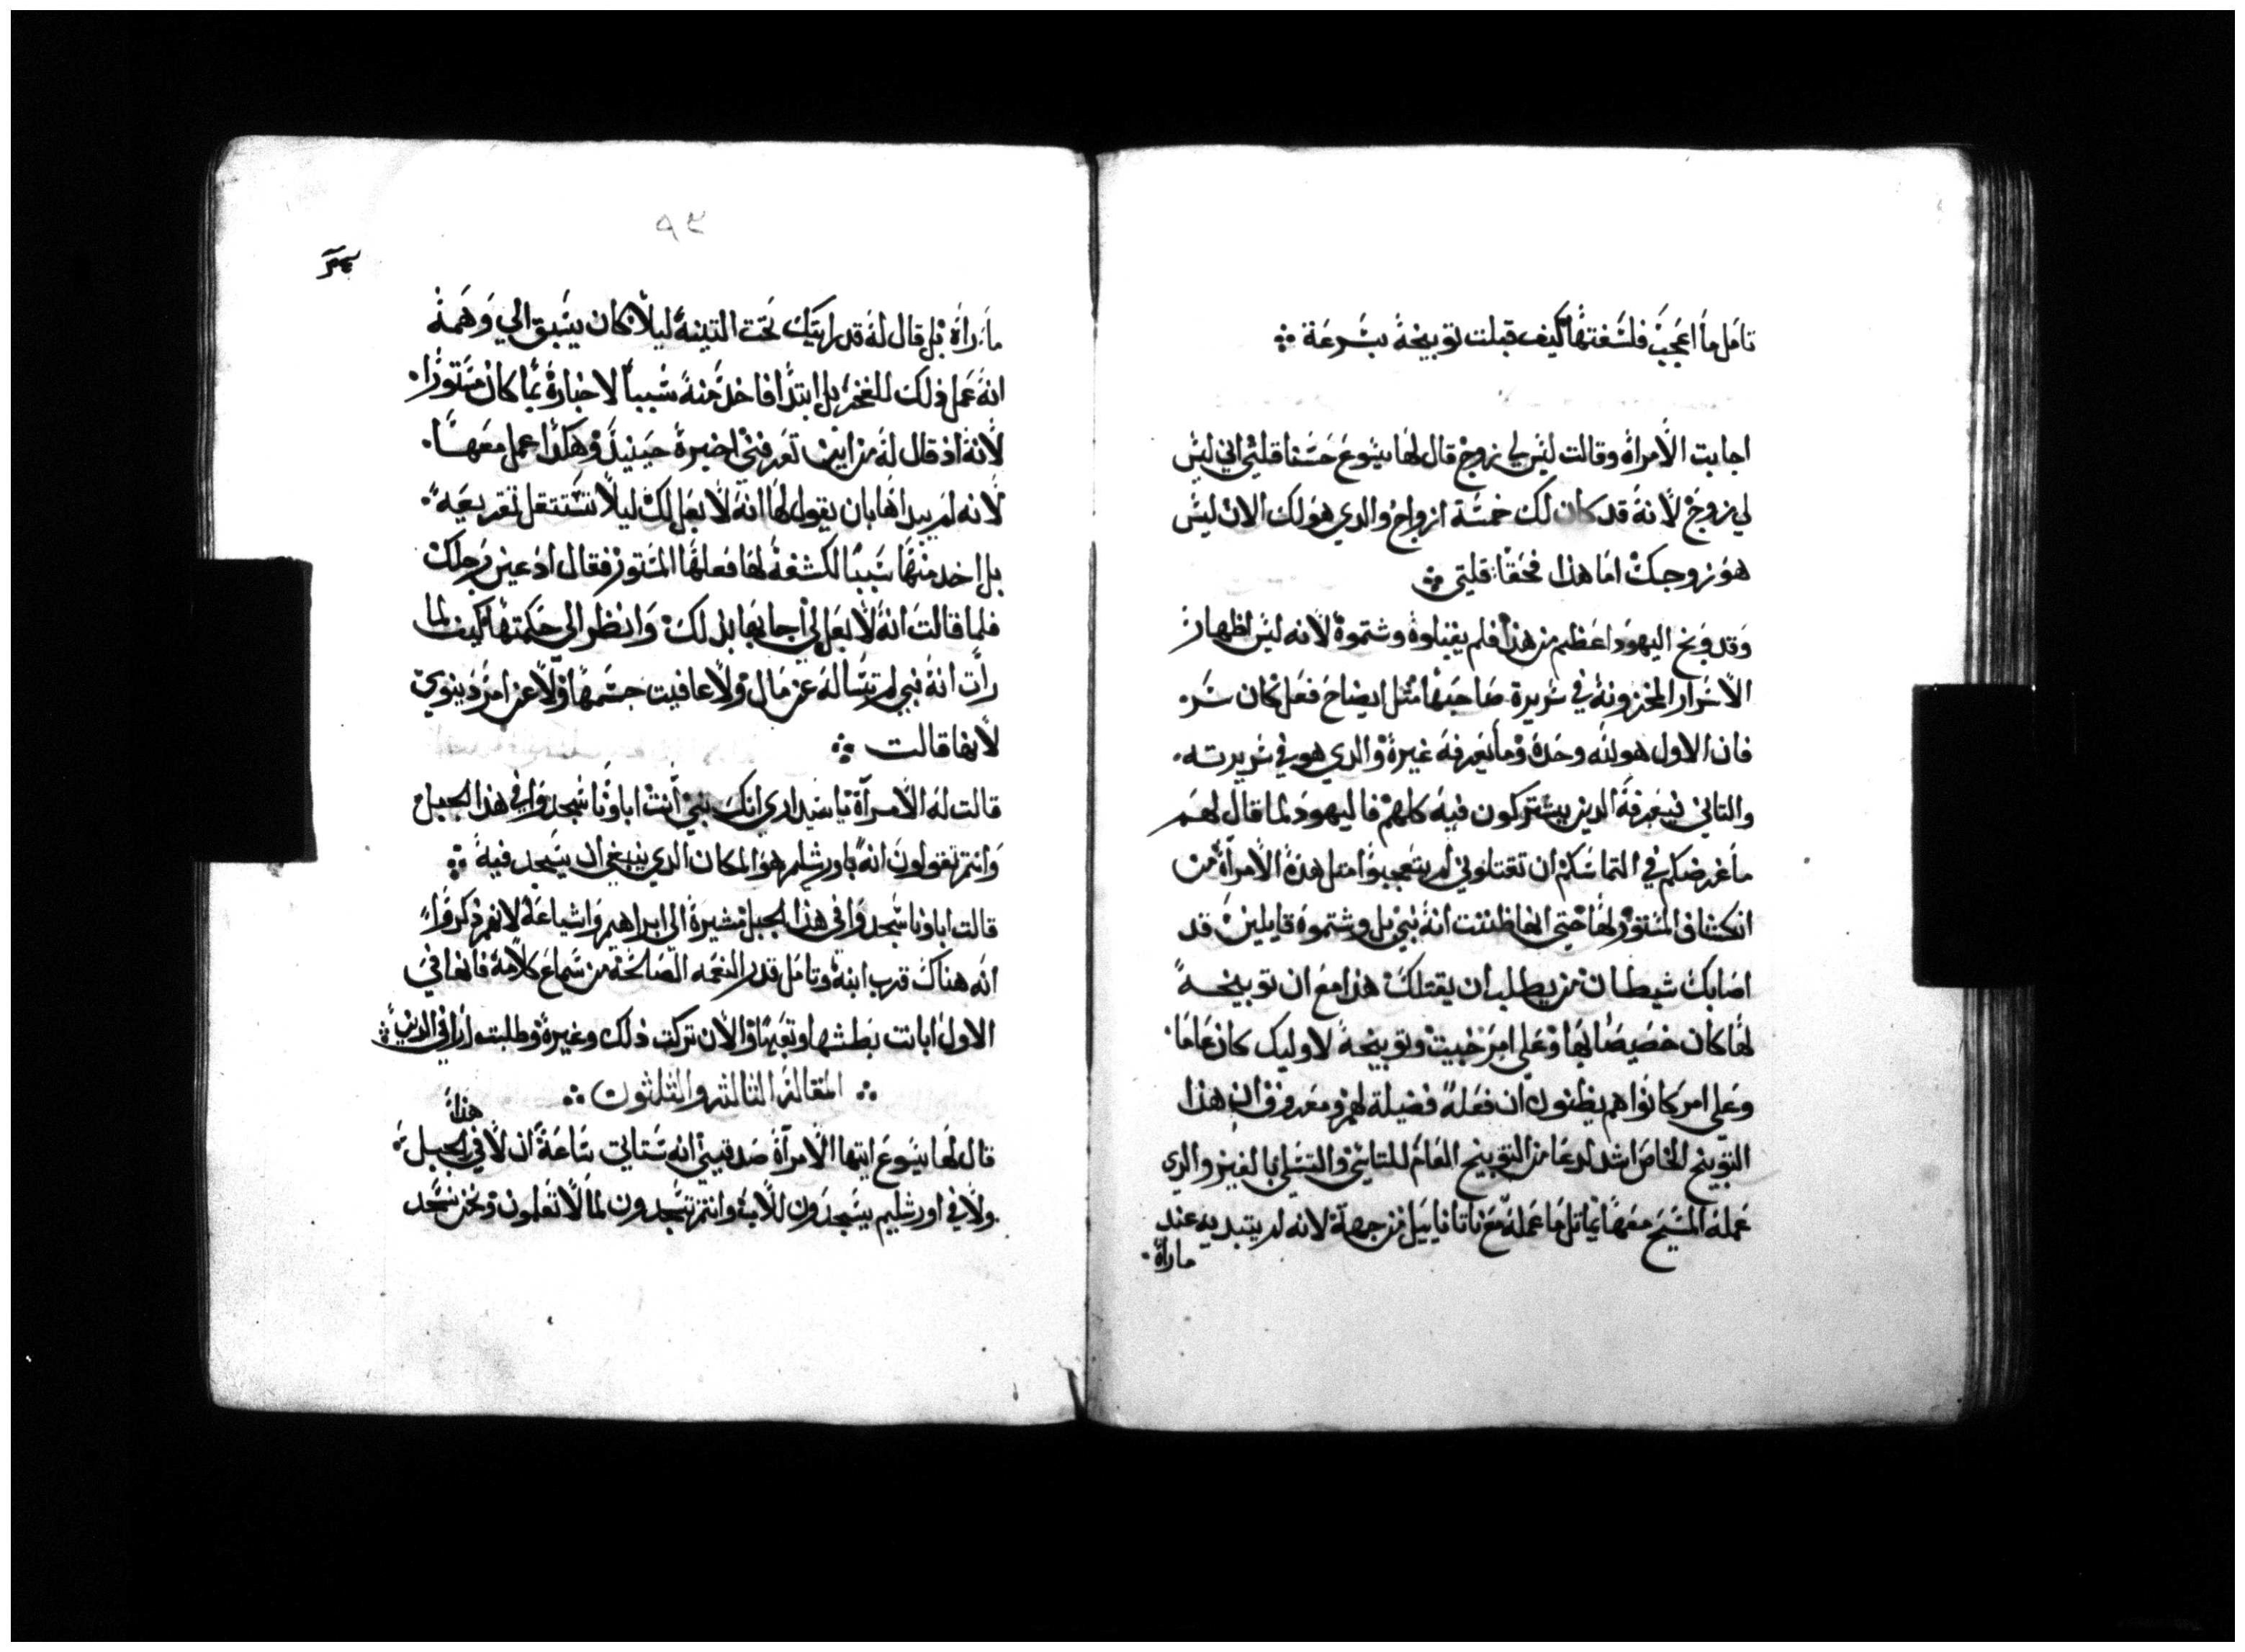 تامل ما اعجب فلسفتها كيف قبلت توبيخه بسرعة
اجابت الامراة وقالت ليس لي زوج قال لها يسوع حسنا قلتي اني ليس
لي زوج لانه قد كان لك خمسة ازواج والدي هو لك الان ليس
هو زوجك اما هذا فحقا قلتي
وقد وبخ اليهود اعظم من هذا فلم يقبلوه وشتموه لانه ليس اظهار
الاسرار المخزونة في سريرة صاحبها مثل ايضاح فعل كان سر
فان الاول هو له وحده وما يعرفه غيره والدي هو في سريرته
والتاني فيعرفه الدين يشتركون فيه كلهم فاليهود لما قال لهم
ما غرضكم في التماسكم ان تقتلوني لم يتعجبوا متل هذه الامراة من
انكشاف المستور لها حتي انها ظننت انه نبي بل وشتموه قايلين قد
اصابك شيطان من يطلب ان يقتلك هذا مع ان توبيخه
لها كان خصيصا بها وعلي امر خبيت وتوبيخه لاوليك كان عاما
وعلي امر كانوا هم يظنون ان فعله فضيلة لهم ومعروف ان هذا
التوبيخ الخاص اشد لدعا من التوبيخ العام للتاسي والتسلي بالغير والدي
عمله المسيح معها يماتل ما عمله مع ناتانايل من جهة لانه لم يبتديه عند
ما راه
٥٣
ما راه بل قال له قد رايتك تحت التينة ليلا كان يسبق الي وهمه
انه عمل دلك للفخر بل ابتدا فاخد منه سببا لاخباره بما كان مستورا
لانه اد قال له من اين تعرفني اخبره حينيد وهكدا عمل معها
لانه لم يبداها بان يقول لها انه لا بعل لك ليلا تستتقل تقريعه
بل اخد منها سببا لكشفه لها فعلها المستور فقال ادعين رجلك
فلما قالت انه لا بعل لي اجابها بدلك وانظر الي حكمتها كيف لما
رات انه نبي لم تساله عن مال ولا عافيت جسمها ولا عن امر دينوي
لانها قالت
قالت له الامراة يا سيد اري انك نبي انت اباونا سجدوا في هذا الجبل
وانتم تقولون انه باورشلم هو المكان الدي ينبغي ان يسجد فيه
قالت اباونا سجدوا في هذا الجبل مشيرة الي ابراهيم واشياعه لانهم دكروا
انه هناك قرب ابنه وتامل قدر النعمه الصالحة من سماع كلامه فانها في
الاول ابانت بطشها وتعبها والان تركت دلك وغيره وطلبت اراي الدين
المقالة الثالثة والثلثون
قال لها يسوع ايتها الامراة صدقيني انه ستاتي ساعة ان لا في هذا الجبل
ولا في اورشليم يسجدون للاب وانتم تسجدون لما لا تعلمون ونحن نسجد